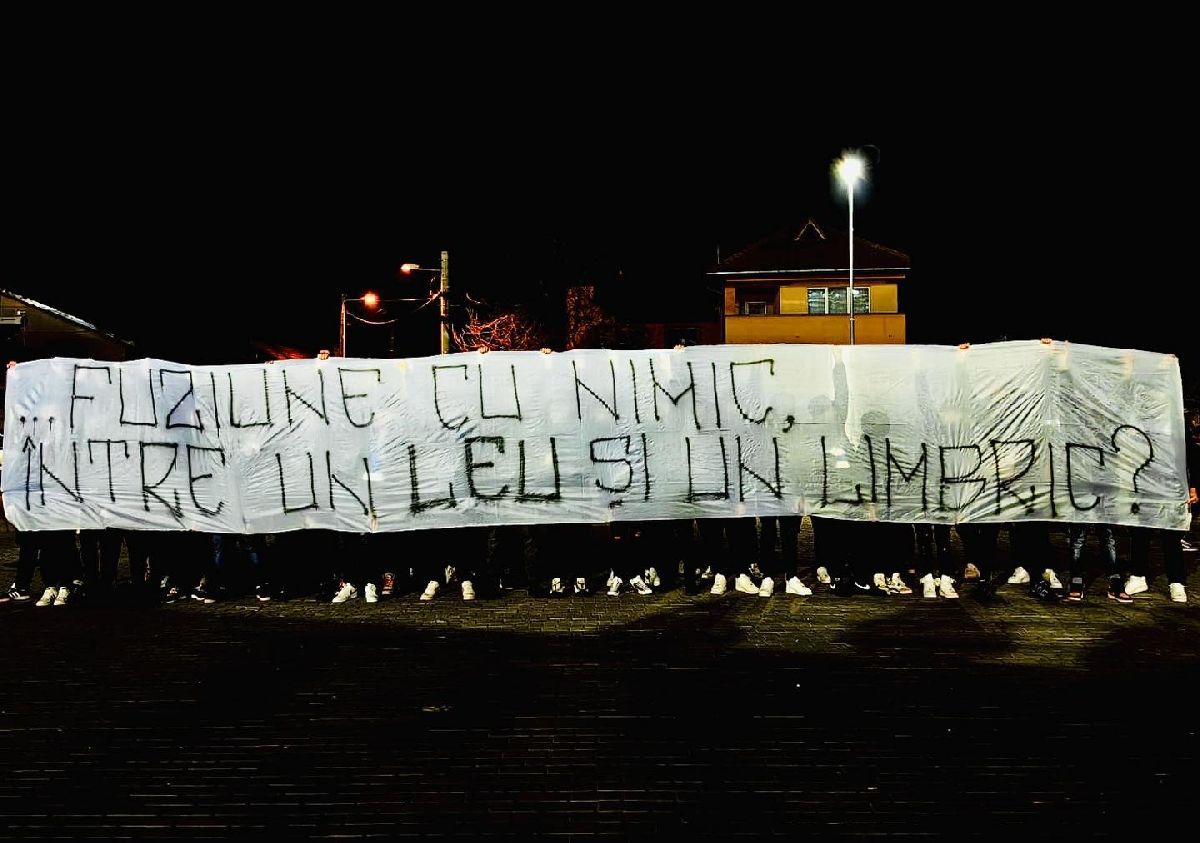 ...FUZIUNE CU NIMIC,
ÎNTRE UN LEU ȘI UN LIMBRIC?